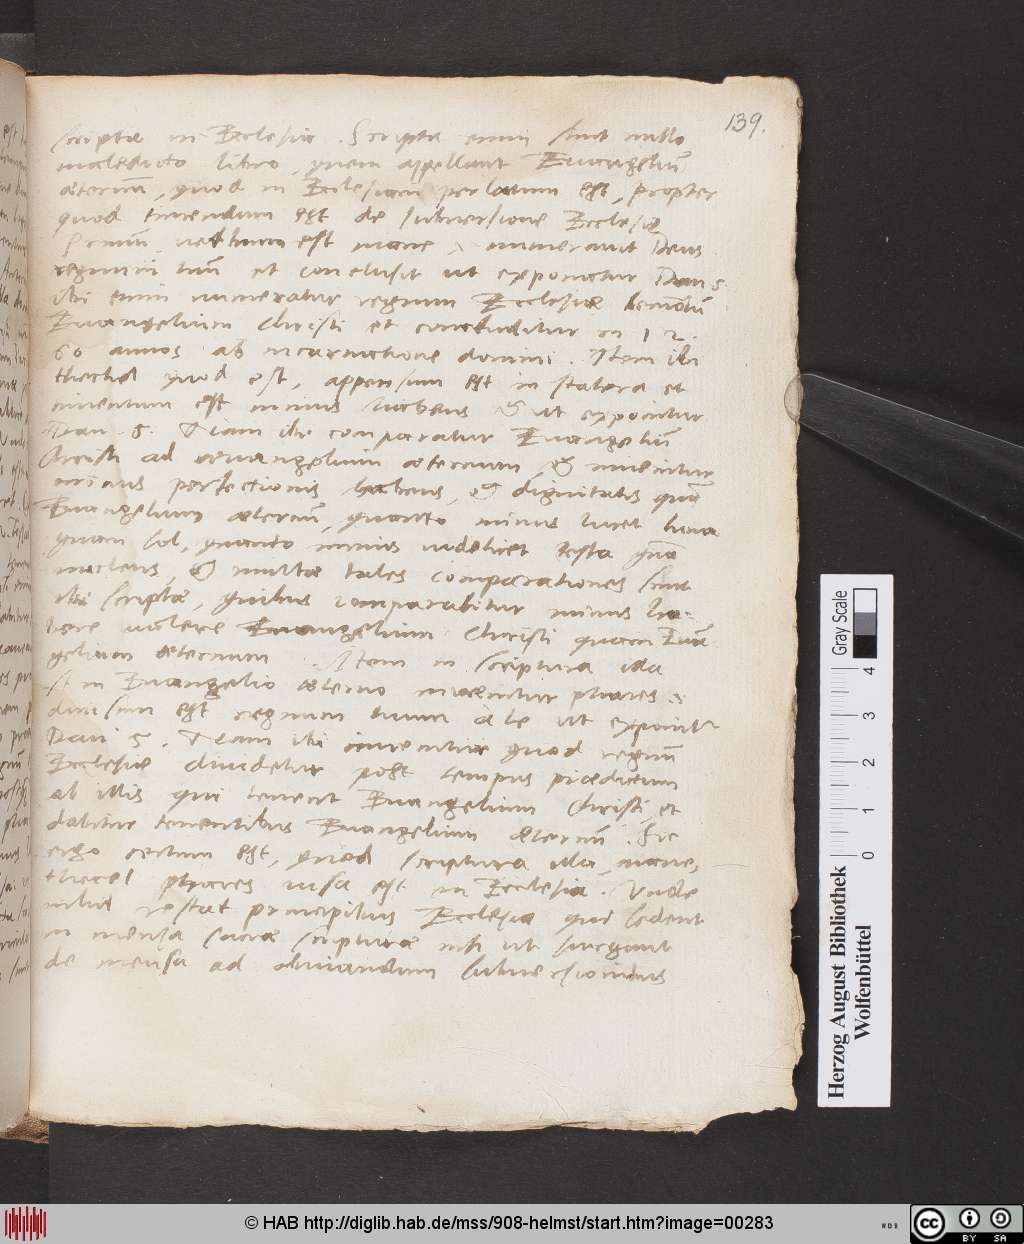 139.
scriptæ in Ecclesia. Scripta enim sunt in illo
maledicto libro, quem appellant Euangeliũ
æternũ, quod in Ecclesiam perlatum est, propter
quod timendum est de subuersione Ecclesiæ
Primũ verbum est mane, numerauit Deus
regnum tuũ et conclusit ut exponitur Dan 5.
ibi enim numeratur regnum Ecclesiæ secundũ
Euangelium Christi et concluditur in 12
60 annos ab incarnatione domini. Item ibi
thechel quod est, appensum est in statera et
inuentum est minus habens & ut exponitur
Dan. 5. Nam ibi comparatur Euangeliũ
Christi ad euangelium æternum & inuenitur
minus perfectionis habens, & dignitatis quã
Euangelium æternũ, quanto minus lucet luna
quam sol, quanto minus videlicet testa quã
nucleus, & multæ tales comparationes sunt
ibi scriptæ, quibus comparabitur minus ha-
bere valere Euangelium Christi quam Euã
gelium æternum. Item in scriptura illa
in Euangelio æterno inuenitur phares:
diuisum est regnum tuum a te ut exponitr
Dan 5. Nam ibi inuenitur quod regnũ
Ecclesiæ diuidetur post tempus prædictum
ab illis qui tenent Euangelium Christi, et
dabitur tenentibus Euangelium æternũ. Sic
ergo certum est, quod scriptura illa, mane,
thecel phares iusa est in Ecclesia. Vnde
nihil restat principibus Ecclesiæ qui sedent
in mensa sacræ scripturæ nisi ut surgant
de mensa ad obuiandum subuersionibus
Gray Scale
0 1 2 3 4
Herzog August Bibliothek
Wolfenbüttel
© HAB http://diglib.hab.de/mss/908-helmst/start.htm?image=00283
WDB
cc BY SA